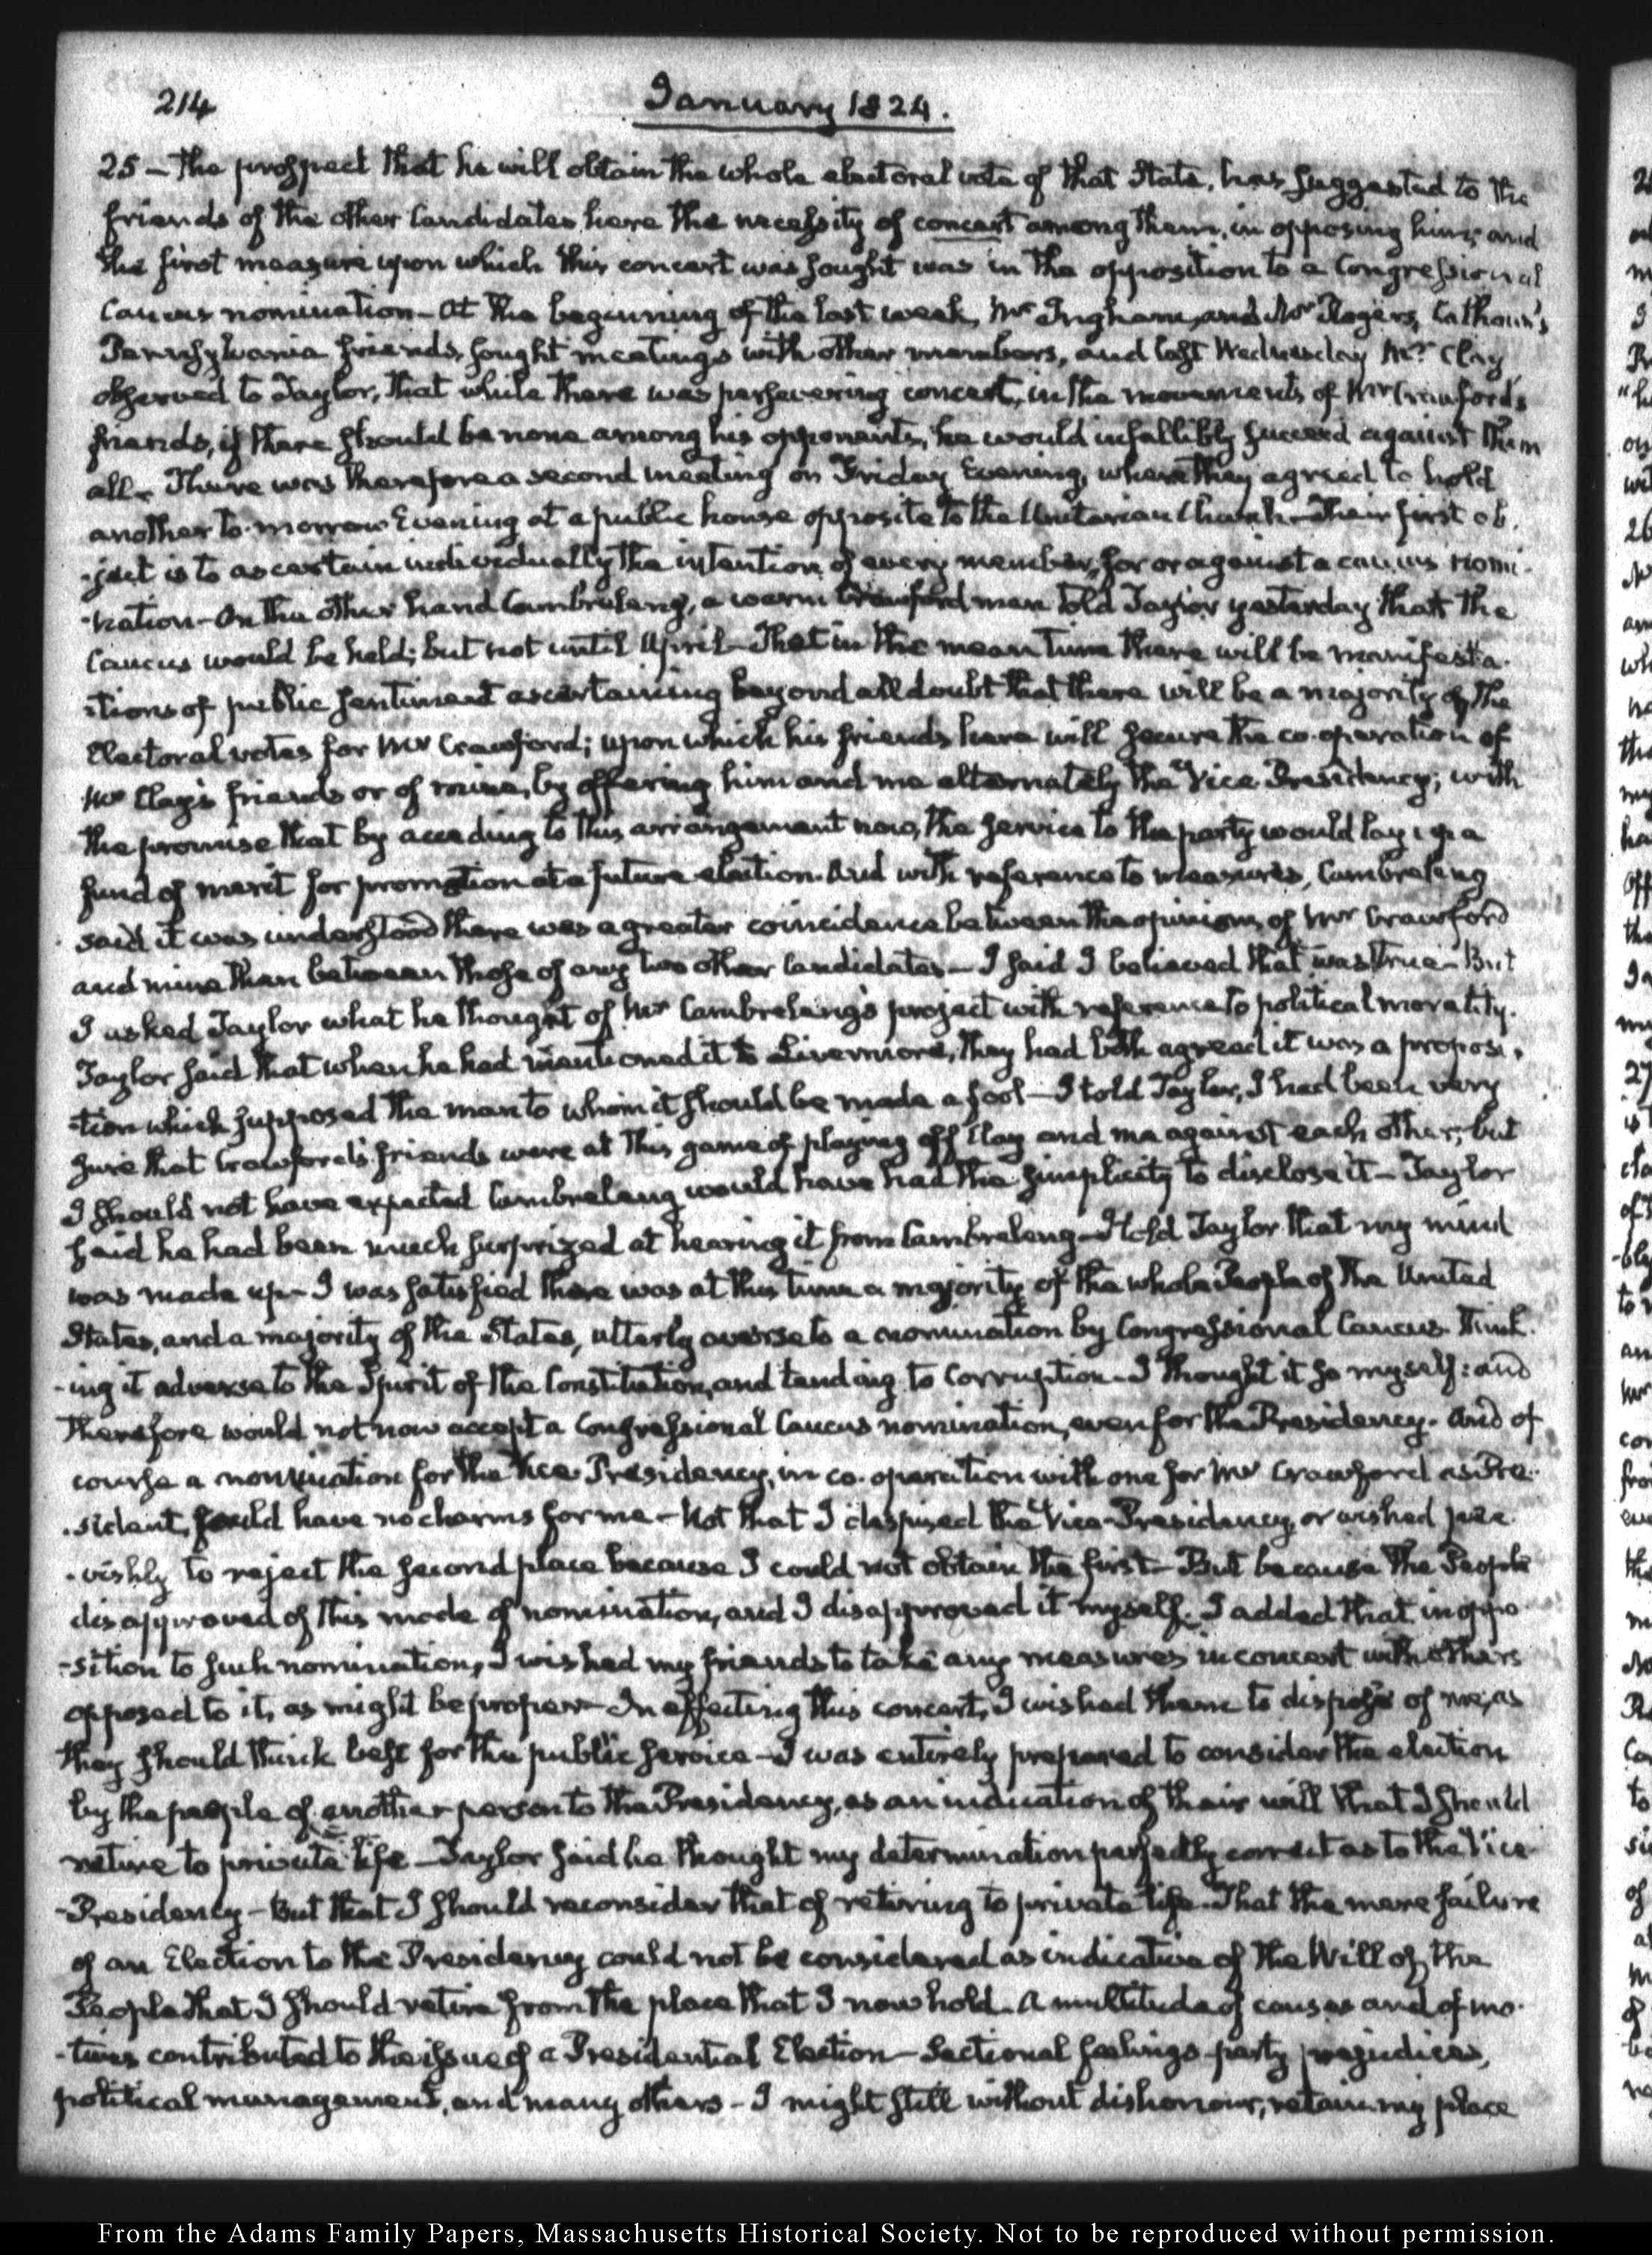 214
January 1824.
25 – The prospect that he will obtain the whole electoral vote of that State, has suggested to the
friends of the other Candidates here the necessity of concert among them, in opposing him; and
the first measure upon which this concert was sought was in the opposition to a Congressional
Caucus nomination – At the beginning of the last week, Mr Ingham, and Mr Rogers, Calhoun's
Pennsylvania friends, sought meetings with other members, and last Wednesday Mr Clay
observed to Taylor, that while there was persevering concert, in the movements of Mr Crawford's
friends, if there should be none among his opponents, he would infallibly succeed against them
all – There was therefore a second meeting on Friday Evening, where they agreed to hold
another to-morrow Evening at a public house opposite to the Unitarian Church – Their first ob-
-ject is to ascertain individually the intention of every member, for or against a caucus nomi-
-nation – On the other hand Cambreleng, a warm Crawford man told Taylor yesterday that the
Caucus would be held; but not until April – That in the mean time there will be manifesta-
-tions of public sentiment ascertaining beyond all doubt that there will be a majority of the
Electoral votes for Mr Crawford; upon which his friends here will secure the co-operation of
Mr Clay's friends or of mine, by offering him and me alternately the Vice Presidency; with
the promise that by acceding to this arrangement now, the service to the party would lay up a
fund of merit for promotion at a future election. And with reference to measures, Cambreleng
said it was understood there was a greater coincidence between the opinions of Mr Crawford
and mine than between those of any two other Candidates – I said I believed that was true – But
I asked Taylor what he thought of Mr Cambreleng's project with reference to political morality.
Taylor said that when he had mentioned it to Livermore, they had both agreed it was a proposi-
-tion which supposed the man to whom it should be made a fool – I told Taylor, I had been very
sure that Crawford's friends were at this game of playing off Clay and me against each other; but
I should not have expected Cambreleng would have had the simplicity to disclose it – Taylor
said he had been much surprized at hearing it from Cambreleng – I told Taylor that my mind
was made up – I was satisfied there was at this time a majority of the whole People of the United
States, and a majority of the States, utterly averse to a nomination by Congressional Caucus. Think-
-ing it adverse to the Spirit of the Constitution, and tending to Corruption – I thought it so myself: and
therefore would not now accept a Congressional Caucus nomination, even for the Presidency. And of
course a nomination for the Vice Presidency, in co-operation with one for Mr Crawford as Pre-
-sident, could have no charms for me – Not that I despised the Vice-Presidency, or wished pee-
-vishly to reject the second place because I could not obtain the first – But because the People
disapproved of this mode of nomination, and I disapproved it myself. I added that in oppo-
-sition to such nomination, I wished my friends to take any measures in concert with others
opposed to it, as might be proper – In effecting this concert, I wished them to dispose of me, as
they should think best for the public service – I was entirely prepared to consider the election
by the people of another person to the Presidency, as an indication of their will that I should
retire to private life – Taylor said he thought my determination perfectly correct as to the Vice-
-Presidency – But that I should reconsider that of retiring to private life – That the mere failure
of an Election to the Presidency could not be considered as indicative of the Will of the
People that I should retire from the place that I now hold. A multitude of causes and of mo-
-tives contributed to the issue of a Presidential Election – Sectional feelings – party prejudices,
political management, and many others – I might still without dishonour, retain my place
From the Adams Family Papers, Massachusetts Historical Society. Not to be reproduced without permission.